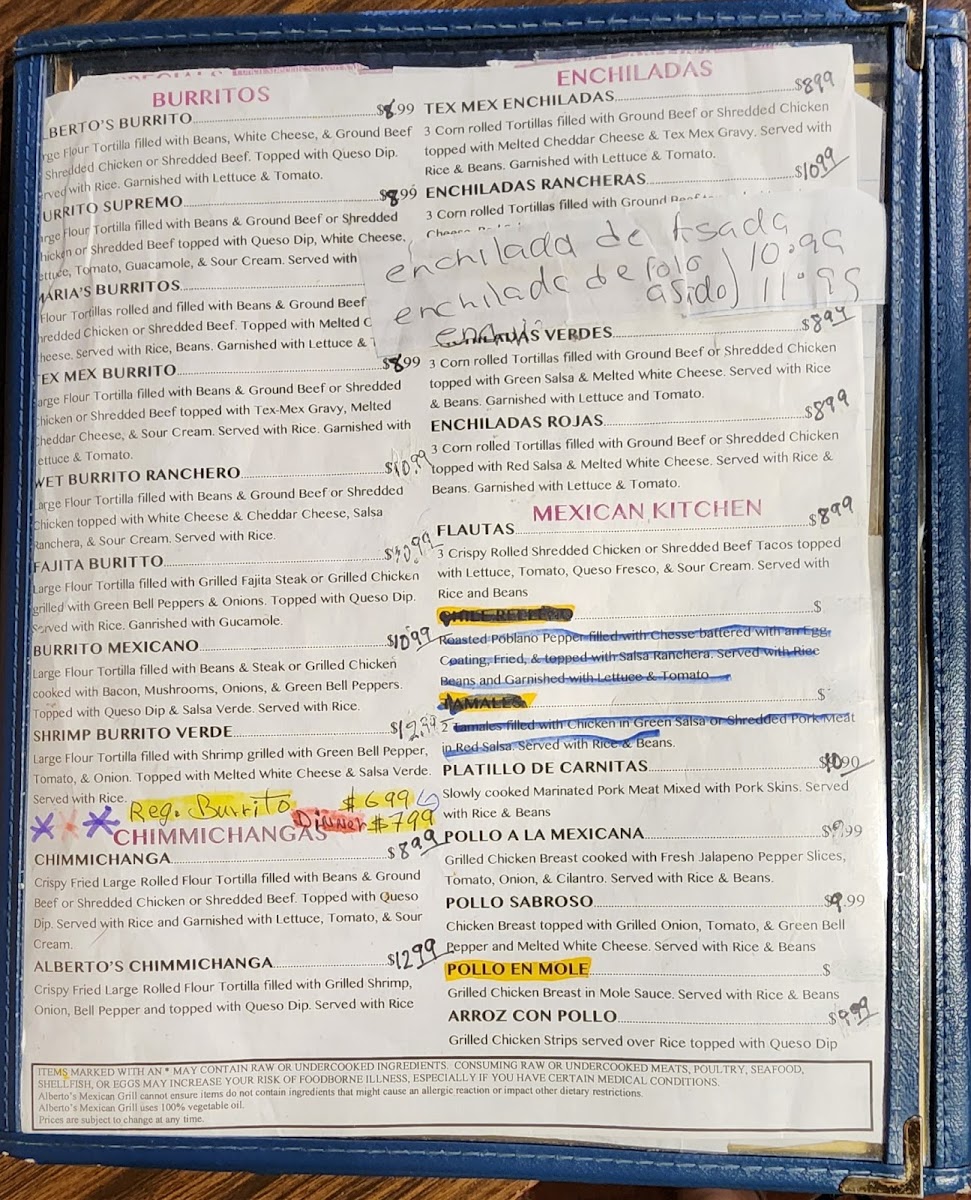 BURRITOS
BERTO'S BURRITO $8.99
rge Flour Tortilla filled with Beans, White Cheese, & Ground Beef
Shredded Chicken or Shredded Beef. Topped with Queso Dip.
rved with Rice. Garnished with Lettuce & Tomato.
URRITO SUPREMO $8.99
arge Flour Tortilla filled with Beans & Ground Beef or Shredded
hicken or Shredded Beef topped with Queso Dip, White Cheese,
ettuce, Tomato, Guacamole, & Sour Cream. Served with
MARIA'S BURRITOS
Flour Tortillas rolled and filled with Beans & Ground Beef
hredded Chicken or Shredded Beef. Topped with Melted C
heese. Served with Rice, Beans. Garnished with Lettuce & T
EX MEX BURRITO $8.99
arge Flour Tortilla filled with Beans & Ground Beef or Shredded
hicken or Shredded Beef topped with Tex-Mex Gravy, Melted
heddar Cheese, & Sour Cream. Served with Rice. Garnished with
ettuce & Tomato.
WET BURRITO RANCHERO $10.99
arge Flour Tortilla filled with Beans & Ground Beef or Shredded
Chicken topped with White Cheese & Cheddar Cheese, Salsa
Ranchera, & Sour Cream. Served with Rice.
FAJITA BURITTO $10.99
Large Flour Tortilla filled with Grilled Fajita Steak or Grilled Chicken
grilled with Green Bell Peppers & Onions. Topped with Queso Dip.
Served with Rice. Ganrished with Gucamole.
BURRITO MEXICANO $1099
Large Flour Tortilla filled with Beans & Steak or Grilled Chicken
cooked with Bacon, Mushrooms, Onions, & Green Bell Peppers.
Topped with Queso Dip & Salsa Verde. Served with Rice.
SHRIMP BURRITO VERDE $12.99
Large Flour Tortilla filled with Shrimp grilled with Green Bell Pepper,
Tomato, & Onion. Topped with Melted White Cheese & Salsa Verde.
Served with Rice.
Reg. Burrito $699
Dinner $799
CHIMMICHANGAS
CHIMMICHANGA $899
Crispy Fried Large Rolled Flour Tortilla filled with Beans & Ground
Beef or Shredded Chicken or Shredded Beef. Topped with Queso
Dip. Served with Rice and Garnished with Lettuce, Tomato, & Sour
Cream.
ALBERTO'S CHIMMICHANGA $1299
Crispy Fried Large Rolled Flour Tortilla filled with Grilled Shrimp,
Onion, Bell Pepper and topped with Queso Dip. Served with Rice
ENCHILADAS
TEX MEX ENCHILADAS $899
3 Corn rolled Tortillas filled with Ground Beef or Shredded Chicken
topped with Melted Cheddar Cheese & Tex Mex Gravy. Served with
Rice & Beans. Garnished with Lettuce & Tomato.
ENCHILADAS RANCHERAS $1099
3 Corn rolled Tortillas filled with Ground Beef
enchilada de Asada
enchilada de polo 10.99
asado) 11.95
VERDES $899
3 Corn rolled Tortillas filled with Ground Beef or Shredded Chicken
topped with Green Salsa & Melted White Cheese. Served with Rice
& Beans. Garnished with Lettuce and Tomato.
ENCHILADAS ROJAS $899
3 Corn rolled Tortillas filled with Ground Beef or Shredded Chicken
topped with Red Salsa & Melted White Cheese. Served with Rice &
Beans. Garnished with Lettuce & Tomato.
MEXICAN KITCHEN
FLAUTAS $899
3 Crispy Rolled Shredded Chicken or Shredded Beef Tacos topped
with Lettuce, Tomato, Queso Fresco, & Sour Cream. Served with
Rice and Beans
CHILE RELLENO $
Roasted Poblano Pepper filled with Chesse battered with an Egg
Coating, Fried, & topped with Salsa Ranchera. Served with Rice
Beans and Garnished with Lettuce & Tomato
TAMALES $
2 tamales filled with Chicken in Green Salsa or Shredded Pork Meat
in Red Salsa. Served with Rice & Beans.
PLATILLO DE CARNITAS $1090
Slowly cooked Marinated Pork Meat Mixed with Pork Skins. Served
with Rice & Beans
POLLO A LA MEXICANA $9.99
Grilled Chicken Breast cooked with Fresh Jalapeno Pepper Slices,
Tomato, Onion, & Cilantro. Served with Rice & Beans.
POLLO SABROSO $9.99
Chicken Breast topped with Grilled Onion, Tomato, & Green Bell
Pepper and Melted White Cheese. Served with Rice & Beans
POLLO EN MOLE $
Grilled Chicken Breast in Mole Sauce. Served with Rice & Beans
ARROZ CON POLLO $9.99
Grilled Chicken Strips served over Rice topped with Queso Dip
ITEMS MARKED WITH AN * MAY CONTAIN RAW OR UNDERCOOKED INGREDIENTS. CONSUMING RAW OR UNDERCOOKED MEATS, POULTRY, SEAFOOD,
SHELLFISH, OR EGGS MAY INCREASE YOUR RISK OF FOODBORNE ILLNESS, ESPECIALLY IF YOU HAVE CERTAIN MEDICAL CONDITIONS.
Alberto's Mexican Grill cannot ensure items do not contain ingredients that might cause an allergic reaction or impact other dietary restrictions.
Alberto's Mexican Grill uses 100% vegetable oil.
Prices are subject to change at any time.